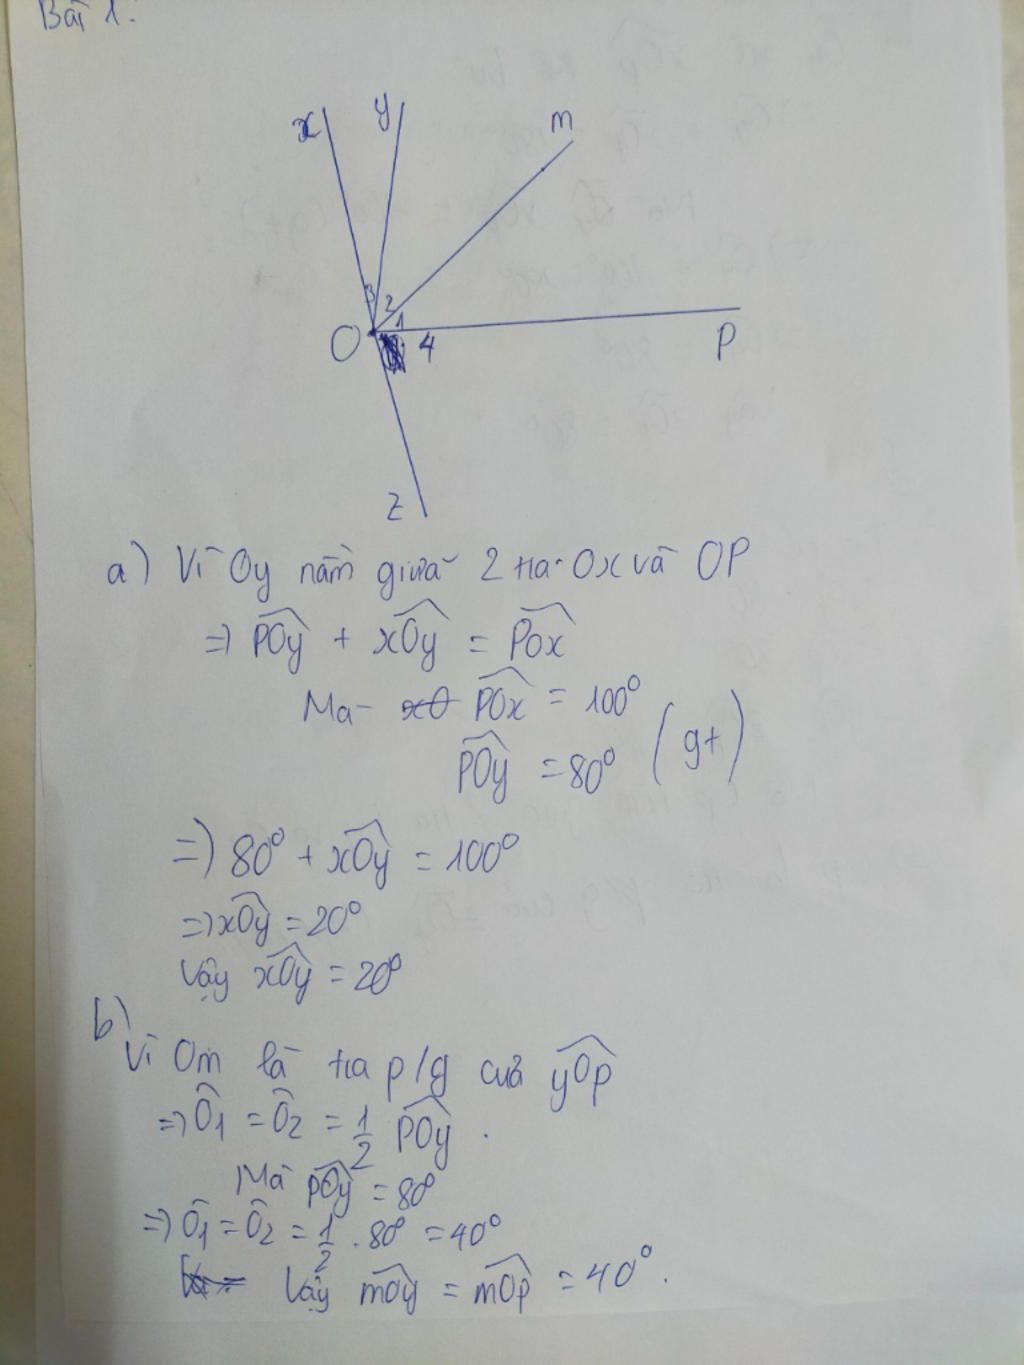 Bài 1:
x
y
m
3
2
1
O
4
P
z
a) Vì Oy nằm giữa 2 tia Ox và OP
=> POy + xOy = POx
Mà POx = 100°
POy = 80° (gt)
=> 80° + xOy = 100°
=> xOy = 20°
Vậy xOy = 20°
b)
Vì Om là tia p/g của yOp
=> Ô1 = Ô2 = 1/2 POy.
Mà POy = 80°
=> Ô1 = Ô2 = 1/2 . 80° = 40°
Vậy mOy = mOp = 40°.